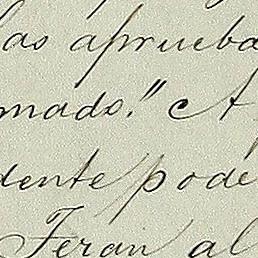 las aprueba
mado." A
dente pode
Teran al